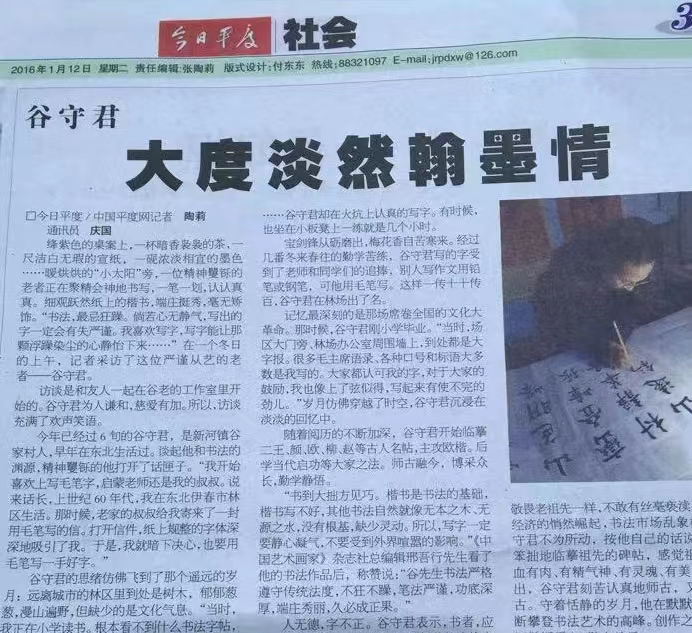 今日平度 社会
3
2016年1月12日 星期二 责任编辑:张陶莉 版式设计:付东东 热线:88321097 E-mail:jrpdxw@126.com
谷守君
大度淡然翰墨情
□今日平度/中国平度网记者 陶莉
通讯员 庆国
绛紫色的桌案上,一杯暗香袅袅的茶,一
尺洁白无瑕的宣纸,一砚浓淡相宜的墨色
……暖烘烘的“小太阳”旁,一位精神矍铄的
老者正在聚精会神地书写,一笔一划,认认真
真。细观跃然纸上的楷书,端庄挺秀,毫无矫
饰。“书法,最忌狂躁。倘若心无静气,写出的
字一定会有失严谨。我喜欢写字,写字能让那
颗浮躁染尘的心静怡下来……”在一个冬日
的上午,记者采访了这位严谨从艺的老
者——谷守君。
访谈是和友人一起在谷老的工作室里开
始的。谷守君为人谦和,慈爱有加。所以,访谈
充满了欢声笑语。
今年已经过6旬的谷守君,是新河镇谷
家村人,早年在东北生活过。谈起他和书法的
渊源,精神矍铄的他打开了话匣子。“我开始
喜欢上写毛笔字,启蒙老师还是我的叔叔。说
来话长,上世纪60年代,我在东北伊春市林
区生活。那时候,老家的叔叔给我寄来了一封
用毛笔写的信。打开信件,纸上规整的字体深
深地吸引了我。于是,我就暗下决心,也要用
毛笔写一手好字。”
谷守君的思绪仿佛飞到了那个遥远的岁
月:远离城市的林区里到处是树木,郁郁葱
葱,漫山遍野,但缺少的是文化气息。“当时,
我正在小学读书。根本看不到什么书法字帖,
……谷守君却在火炕上认真的写字。有时候,
也坐在小板凳上一练就是几个小时。
宝剑锋从砺磨出,梅花香自苦寒来。经过
几番冬来春往的勤学苦练,谷守君写的字受
到了老师和同学们的追捧,别人写作文用铅
笔或钢笔,可他用毛笔写。这样一传十十传
百,谷守君在林场出了名。
记忆最深刻的是那场席卷全国的文化大
革命。那时候,谷守君刚小学毕业。“当时,场
区大门旁,林场办公室周围墙上,到处都是大
字报。很多毛主席语录、各种口号和标语大多
数是我写的。大家都认可我的字,对于大家的
鼓励,我也像上了弦似得,写起来有使不完的
劲儿。”岁月仿佛穿越了时空,谷守君沉浸在
淡淡的回忆中。
随着阅历的不断加深,谷守君开始临摹
二王、颜、欧、柳、赵等古人名帖,主攻欧楷。后
学当代启功等大家之法。师古融今,博采众
长,勤学静悟。
“书到大拙方见巧。楷书是书法的基础,
楷书写不好,其他书自然就像无本之木、无
源之水,没有根基,缺少灵动。所以,写字一定
要静心凝气,不要受到外界喧嚣的影响。”《中
国艺术画家》杂志社总编辑邢吾行先生看了
他的书法作品后,称赞说:“谷先生书法严格
遵守传统法度,不狂不躁,笔法严谨,功底深
厚,端庄秀丽,久必成正果。”
人无德,字不正。谷守君表示,书者,应
敬畏老祖先一样,不敢有丝毫亵渎
经济的悄然崛起,书法市场乱象
守君不为所动,按他自己的话说
笨拙地临摹祖先的碑帖,感觉
血有肉、有精气神,有灵魂、有美
出,谷守君刻苦认真地师古,又
古。守着恬静的岁月,他在默默
断攀登书法艺术的高峰。创作之